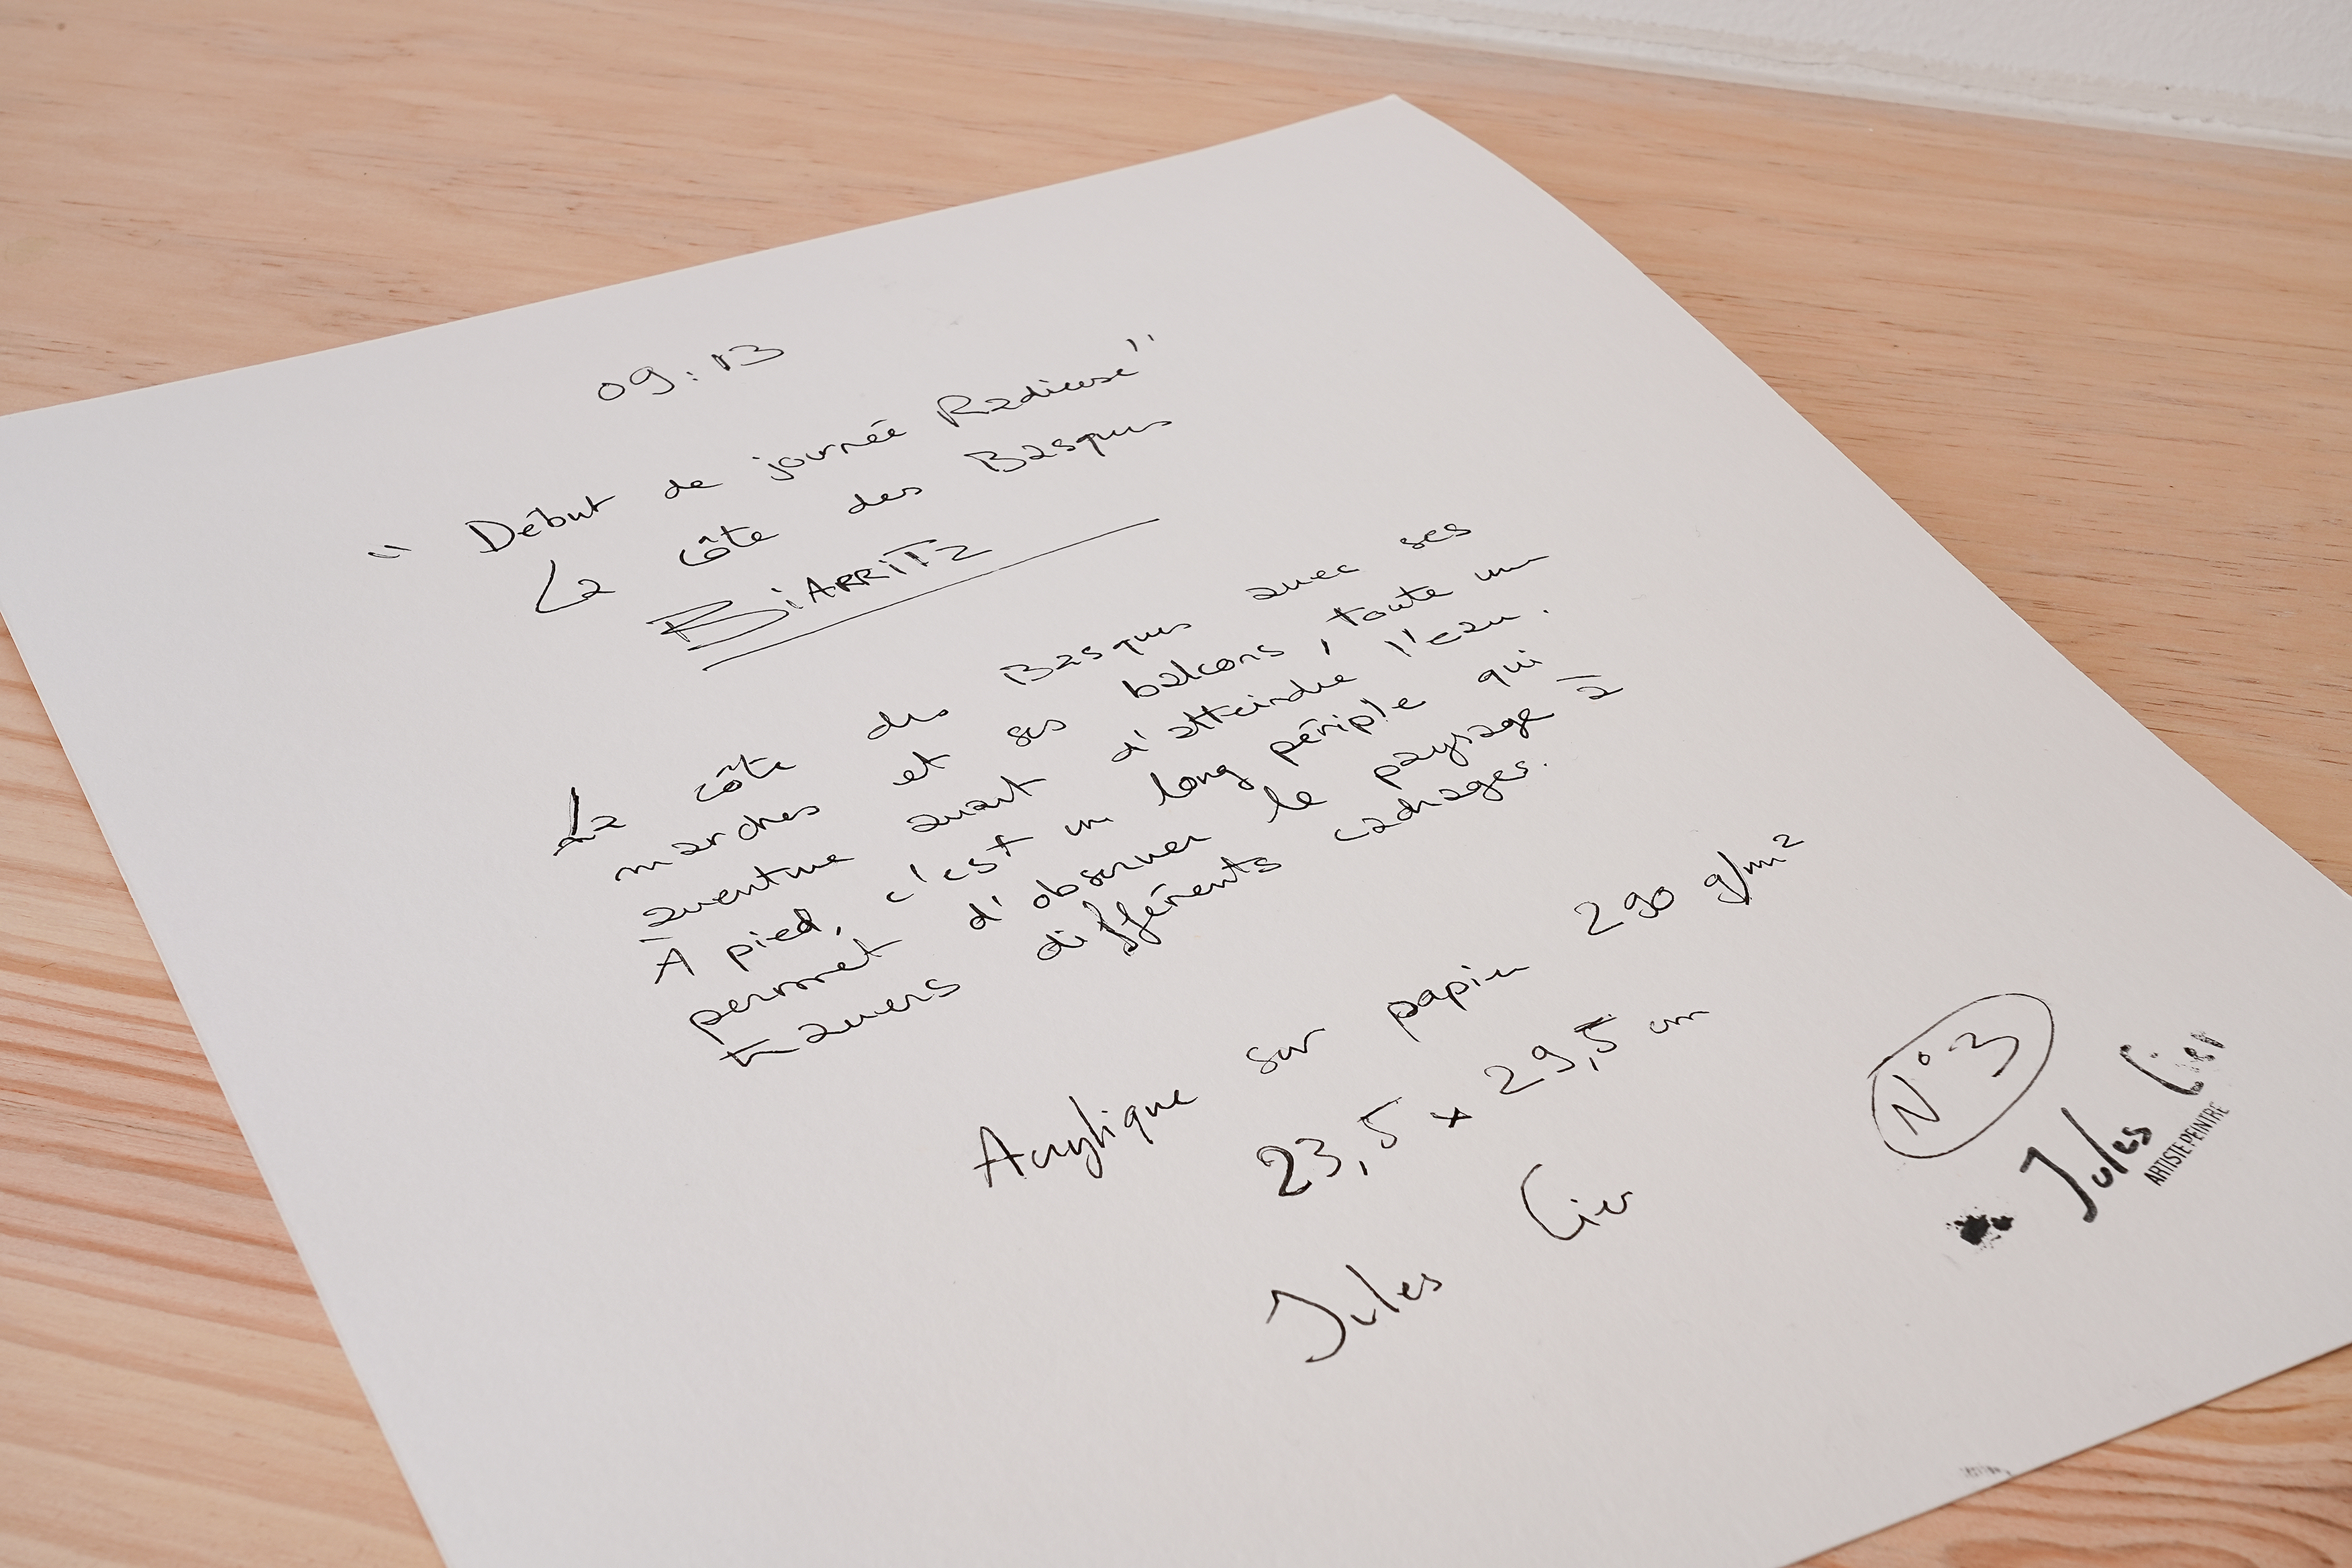 09:13
" Début de journée Radieuse"
La côte des Basques
BiARRiTz
La côte des Basques avec ses
marches et ses balcons, toute une
aventure avant d'atteindre l'eau.
À pied, c'est un long périple qui
permet d'observer le paysage à
travers différents cadrages.
Acrylique sur papier 290 g/m²
23,5 x 29,5 cm
Jules Cier
N°3
Jules Cier
ARTISTE PEINTRE